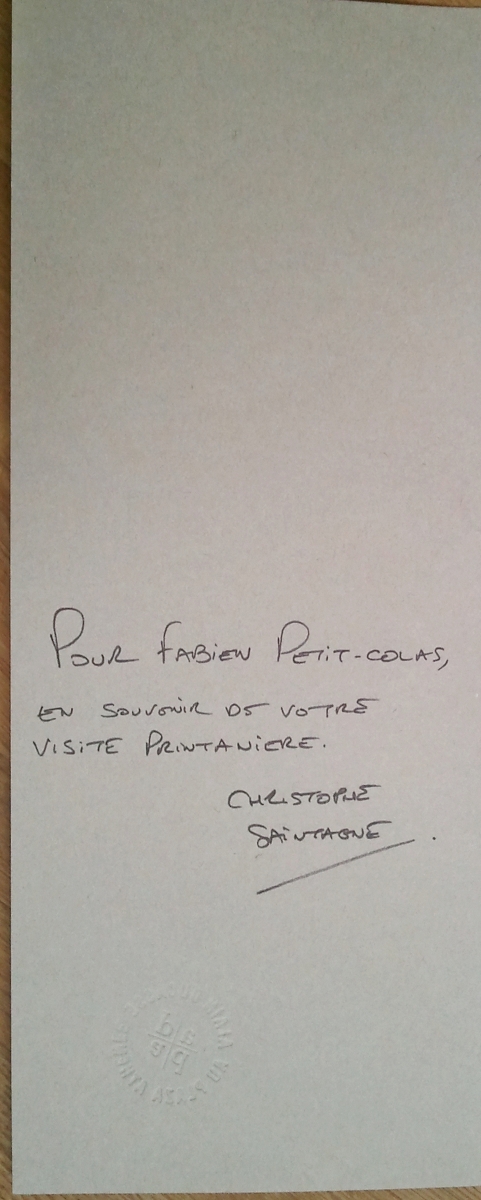 Pour Fabien Petit-Colas,
en souvenir de votre
visite printanière.
Christophe
Saintagne.